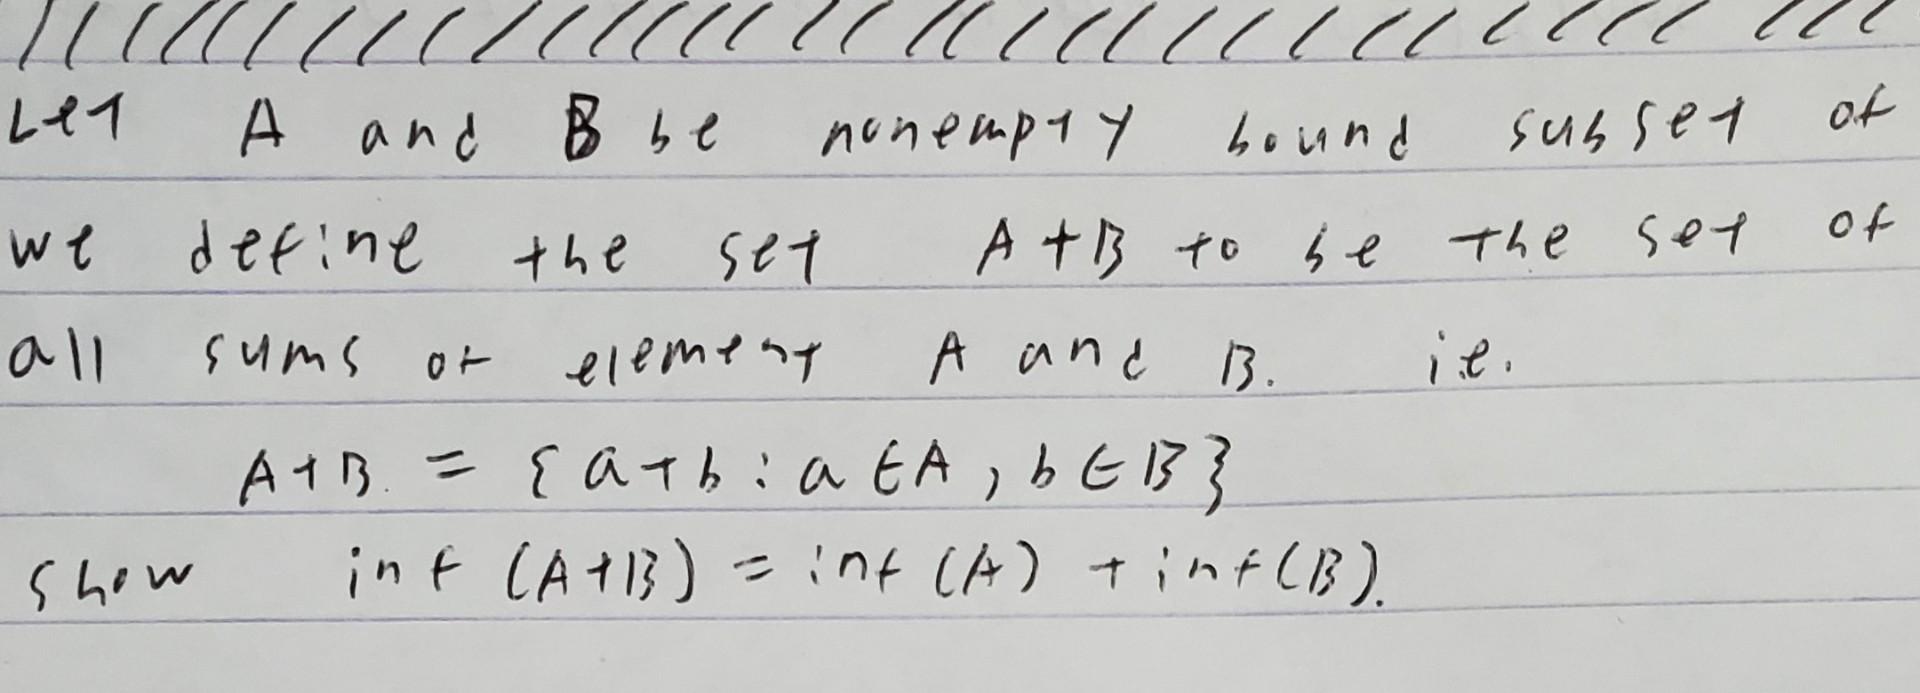 Let A and B be nonempty bound subset of
we define the set A+B to be the set of
all sums of element A and B. i.e.
A+B. = {a+b : a ∈ A, b ∈ B}
show inf (A+B) = inf (A) + inf(B).